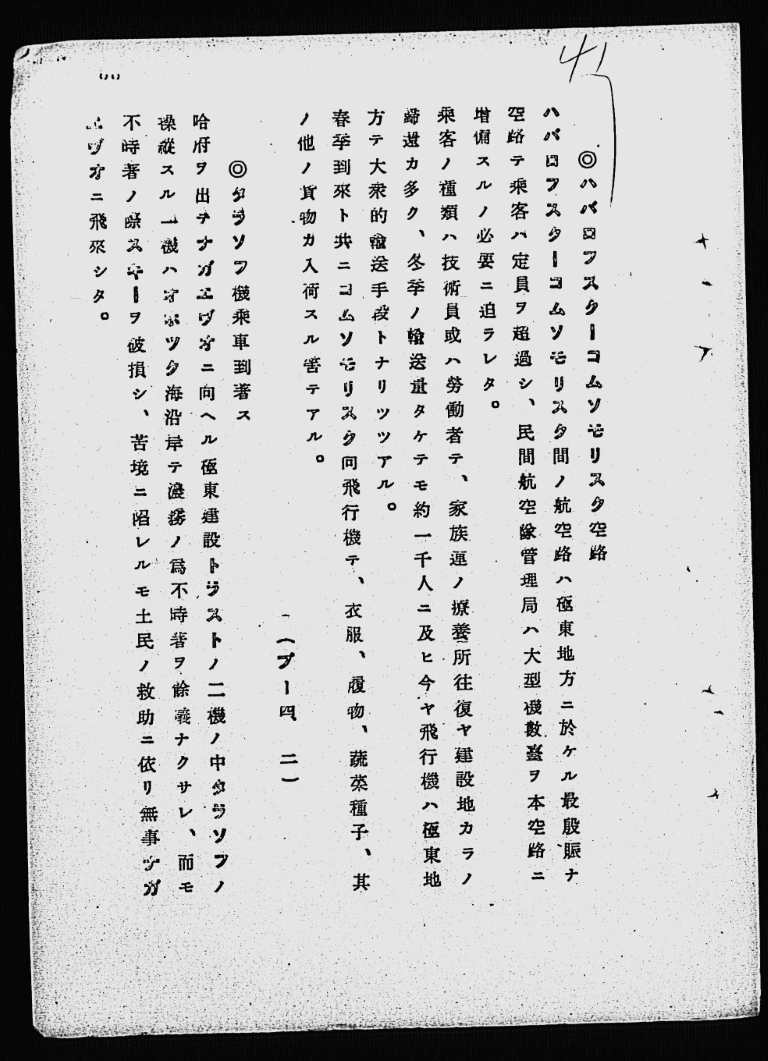 41
◎ハバロフスターコムソモリスク空路
ハバロフスターコムソモリスク間ノ航空路ハ極東地方ニ於ケル最殷賑ナ
空路テ乘客ハ定員ヲ超過シ、民間航空隊管理局ハ大型機數臺ヲ本空路ニ
増備スルノ必要ニ迫ラレタ。
乘客ノ種類ハ技術員或ハ勞働者テ、家族連ノ療養所往復ヤ建設地カラノ
歸還カ多ク、冬季ノ輸送量タケテモ約一千人ニ及ヒ今ヤ飛行機ハ極東地
方テ大衆的輸送手段トナリツツアル。
春季到來ト共ニコムソモリスク向飛行機テ、衣服、履物、蔬菜種子、其
ノ他ノ貨物カ入荷スル筈テアル。
(プー四、二一)
◎タラソフ機乘車到著ス
哈府ヲ出テナガエヴオニ向ヘル極東建設トラストノ二機ノ中タラソフノ
操縱スル一機ハオホツク海沿岸テ濃霧ノ爲不時著ヲ餘義ナクサレ、而モ
不時著ノ際スキーヲ破損シ、苦境ニ陷レルモ土民ノ救助ニ依リ無事ナガ
エヴオニ飛來シタ。